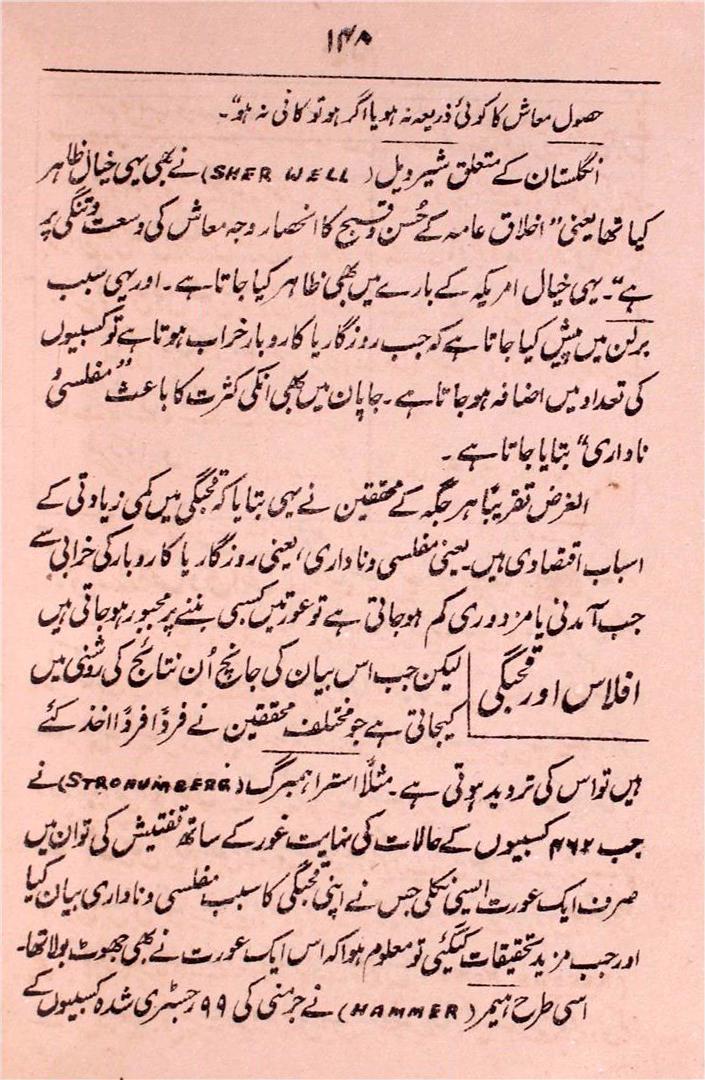 ۱۴۸
حصول معاش کا کوئی ذریعہ نہ ہو یا اگر ہو تو کافی نہ ہو“۔
انگلستان کے متعلق شیرویل (SHER WELL) نے بھی یہی خیال ظاہر
کیا تھا یعنی ”اخلاق عامہ کے حُسن و قبح کا انحصار وجہ معاش کی وسعت و تنگی پر
ہے“۔ یہی خیال امریکہ کے بارے میں بھی ظاہر کیا جاتا ہے۔ اور یہی سبب
برلن میں پیش کیا جاتا ہے کہ جب روزگار یا کاروبار خراب ہوتا ہے تو کسبیوں
کی تعداد میں اضافہ ہو جاتا ہے۔ جاپان میں بھی انکی کثرت کا باعث ”مفلسی و
ناداری“ بتایا جاتا ہے۔
الغرض تقریبًا ہر جگہ کے محققین نے یہی بتایا کہ قحبگی میں کمی زیادتی کے
اسباب اقتصادی ہیں۔ یعنی مفلسی و ناداری، یعنی روزگار یا کاروبار کی خرابی سے
جب آمدنی یا مزدوری کم ہو جاتی ہے تو عورتیں کسبی بننے پر مجبور ہو جاتی ہیں
افلاس اور قحبگی
لیکن جب اس بیان کی جانچ اُن نتائج کی روشنی میں
کیجاتی ہے جو مختلف محققین نے فردًا فردًا اخذ کئے
ہیں تو اس کی تردید ہوتی ہے۔ مثلًا استراہمبرگ (STROHUMBERG) نے
جب ۴۶۲ کسبیوں کے حالات کی نہایت غور کے ساتھ تفتیش کی تو ان میں
صرف ایک عورت ایسی نکلی جس نے اپنی قحبگی کا سبب مفلسی و ناداری بیان کیا
اور جب مزید تحقیقات کیگئی تو معلوم ہوا کہ اس ایک عورت نے بھی جھوٹ بولا تھا۔
اسی طرح ہیمر (HAMMER) نے جرمنی کی ۹۹ رجسٹری شدہ کسبیوں کے